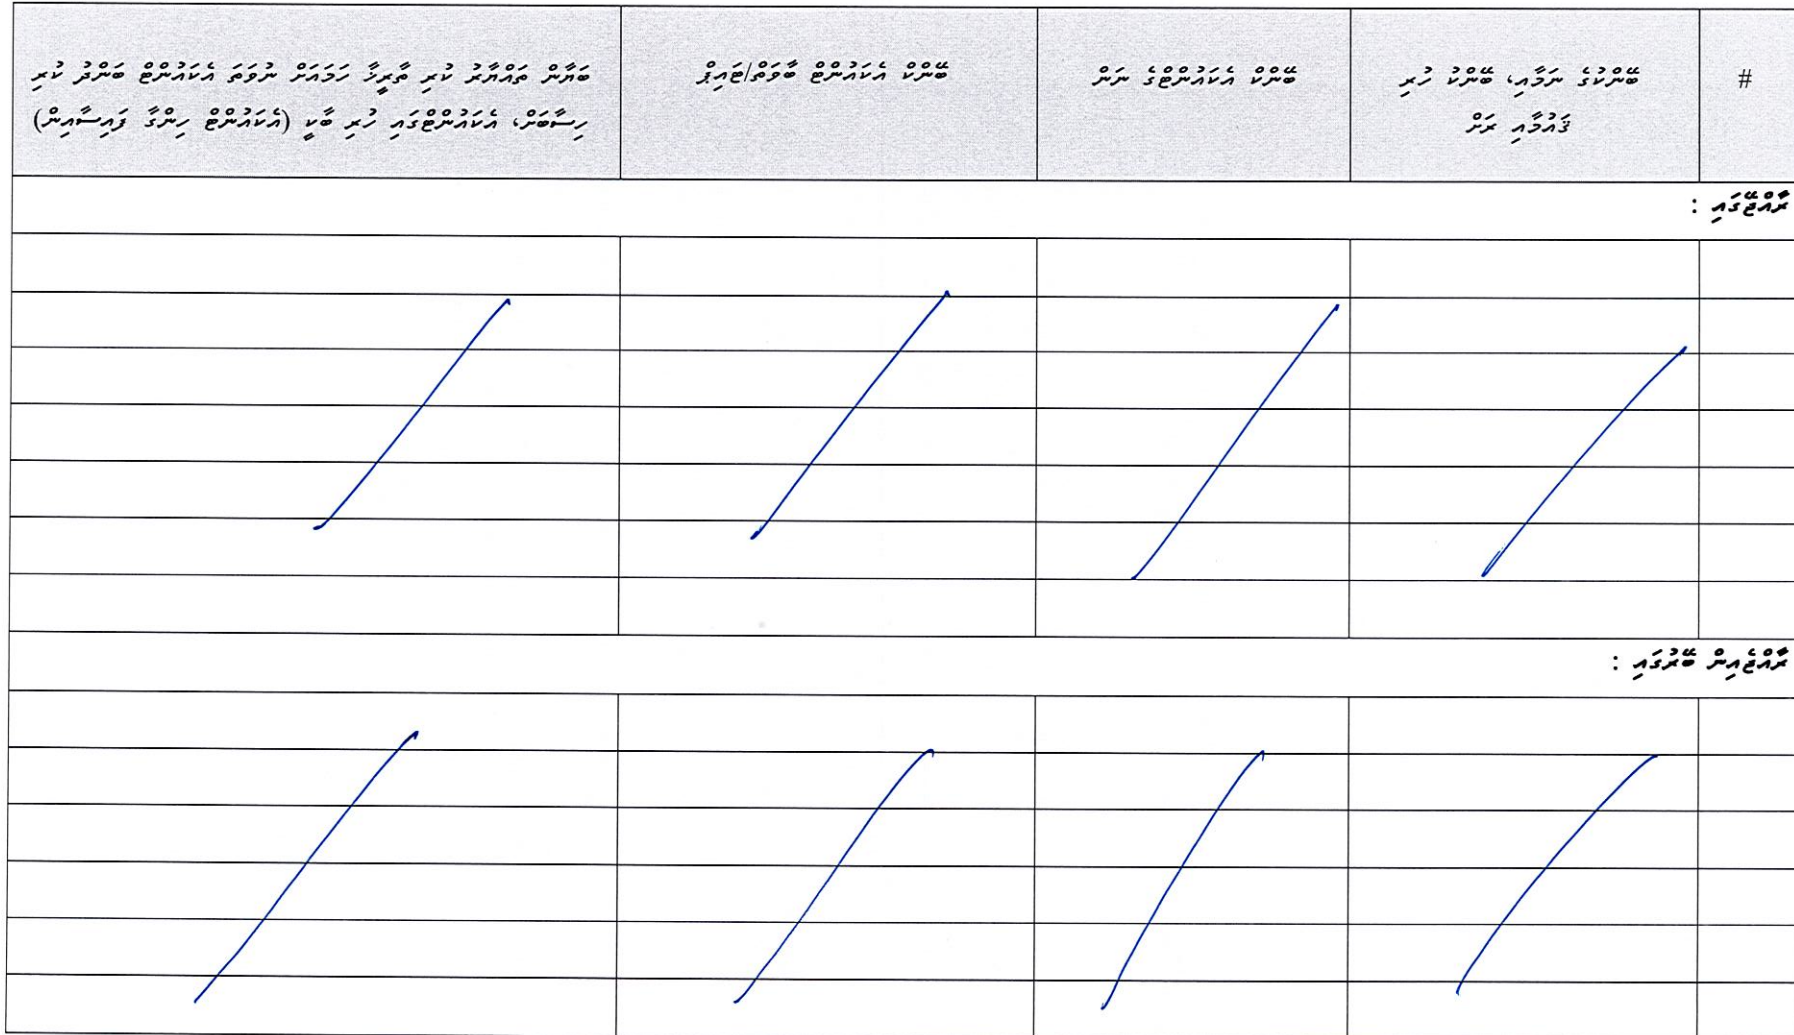 #
ބޭންކުގެ ނަމާއި، ބޭންކު ހުރި
ޤައުމާއި ރަށް
ބޭންކް އެކައުންޓްގެ ނަން
ބޭންކް އެކައުންޓް ބާވަތް/ޓައިޕް
ބަޔާން ތައްޔާރު ކުރި ތާރީޚާ ހަމައަށް ނުވަތަ އެކައުންޓް ބަންދު ކުރި
ހިސާބަށް، އެކައުންޓްގައި ހުރި ބާކީ (އެކައުންޓް ހިންގާ ފައިސާއިން)
ރާއްޖޭގައި :
ރާއްޖެއިން ބޭރުގައި :